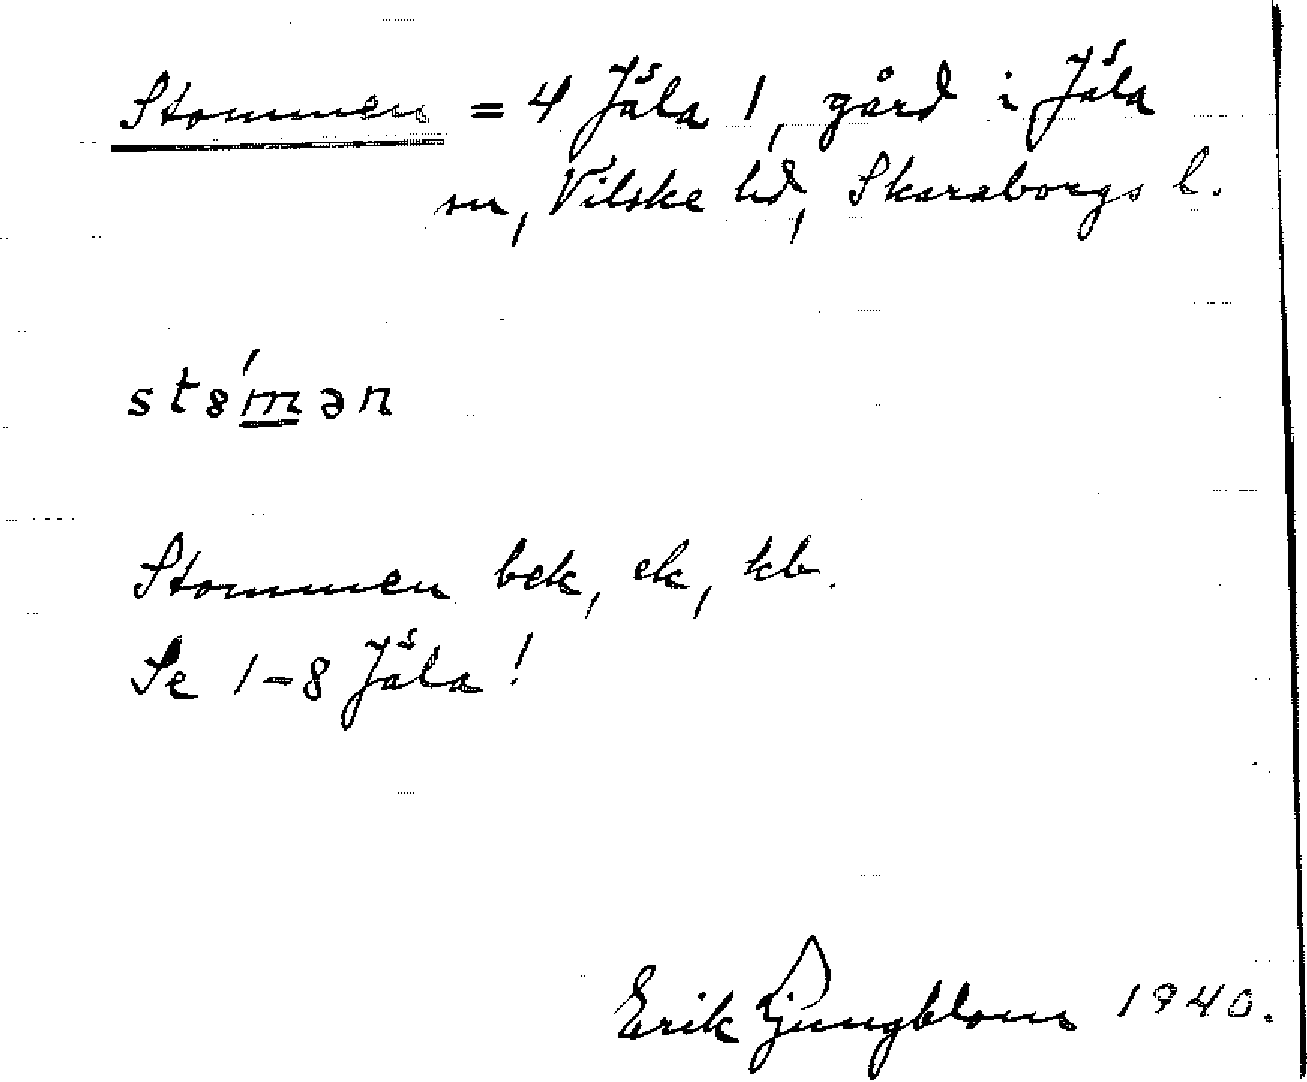 Stommen = 4 Jäla 1, gård i Jäla
sn, Vilske hd, Skaraborgs l.
st8́mən
Stommen bek, ek, kb.
Se 1-8 Jäla!
Erik Ljungblom 1940.